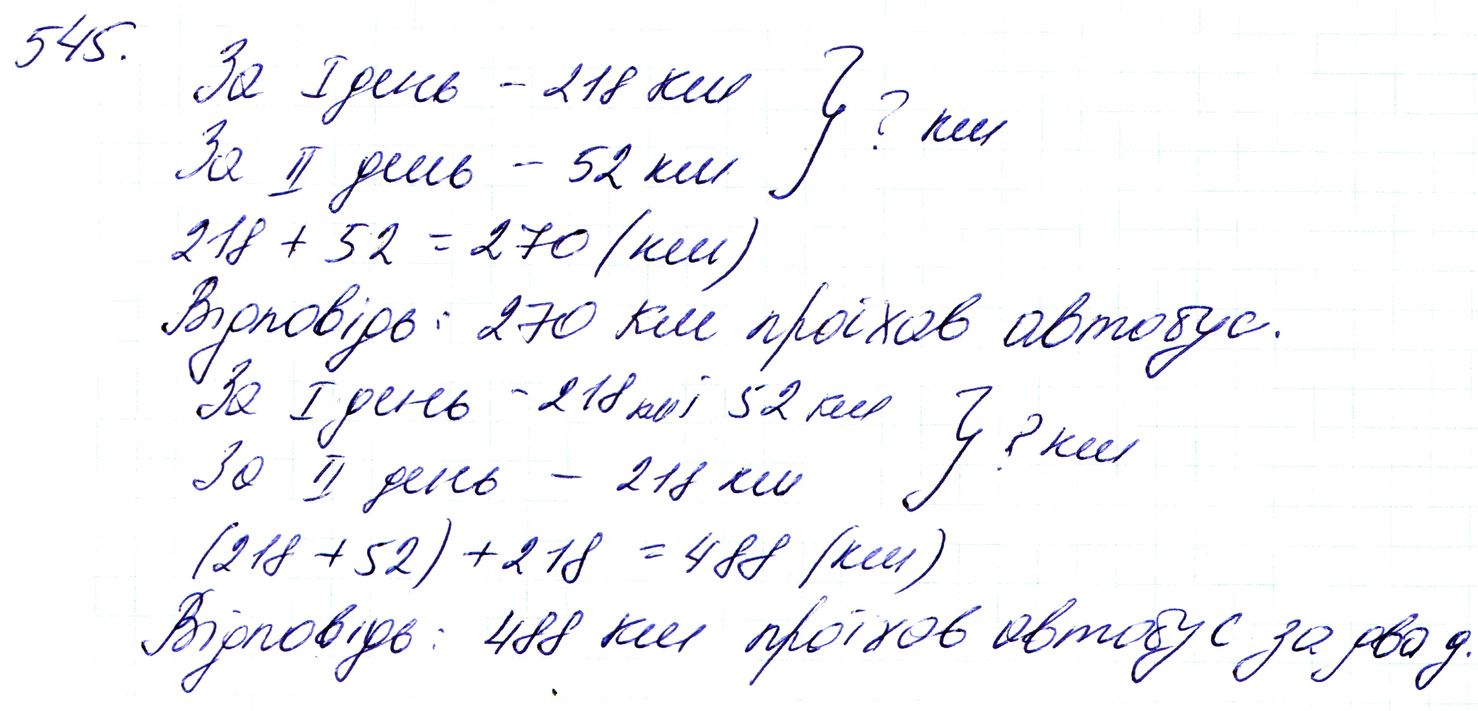 545.
За I день - 218 км } ? км
За II день - 52 км
218 + 52 = 270 (км)
Відповідь: 270 км проїхав автобус.
За I день - 218 км і 52 км } ? км
За II день - 218 км
(218 + 52) + 218 = 488 (км)
Відповідь: 488 км проїхав автобус за два д.